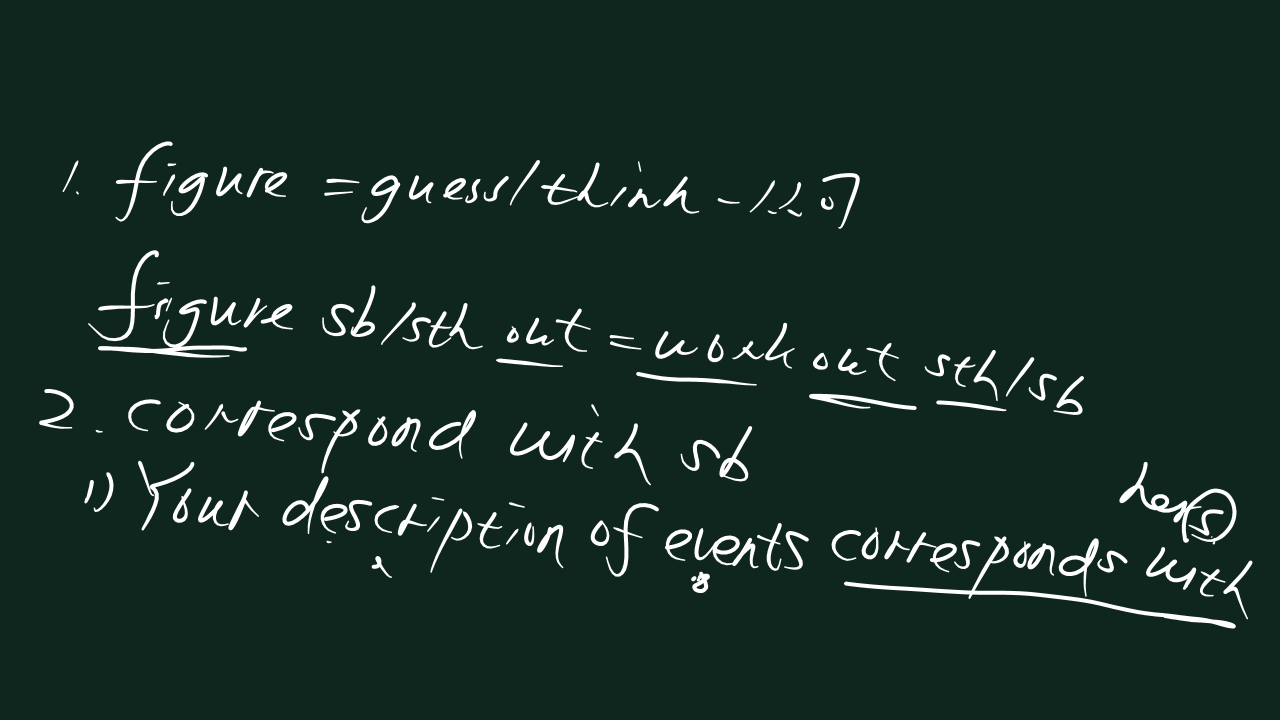 1. figure = guess/think - 认为
figure sb/sth out = work out sth/sb
2. correspond with sb
1) Your description of events corresponds with
hers